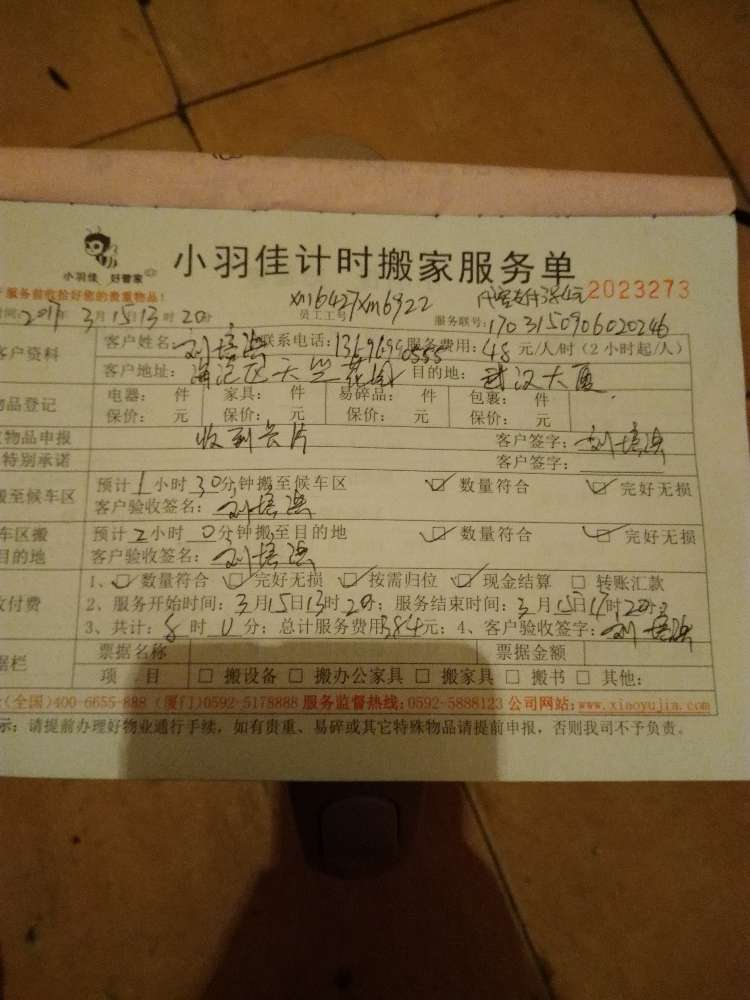 小羽佳 好管家
小羽佳计时搬家服务单
服务前收拾好您的贵重物品！
xm6427xm6922
内容支付384元
2023273
时间：2017年3月15日13时20分
员工工号：
服务联号：1703150906020246
客户资料
客户姓名：刘培滨 联系电话：13696990555 服务费用：48元/人/时（2小时起/人）
客户地址：海沧区天竺花园 目的地：武汉大厦
物品登记
电器： 件 家具： 件 易碎品： 件 包裹： 件
保价： 元 保价： 元 保价： 元 保价： 元
物品申报 收到长片 客户签字：刘培滨
特别承诺 客户签字：
搬至候车区
预计1小时30分钟搬至候车区 ☑数量符合 ☑完好无损
客户验收签名：刘培滨
车区搬
目的地
预计2小时0分钟搬至目的地 ☑数量符合 ☑完好无损
客户验收签名：刘培滨
付费
1、☑数量符合 ☑完好无损 ☑按需归位 ☑现金结算 □转账汇款
2、服务开始时间：3月15日13时20分；服务结束时间：3月15日17时20分
3、共计：8时0分；总计服务费用384元；4、客户验收签字：刘培滨
据栏
票据名称 票据金额
项 目 □搬设备 □搬办公家具 □搬家具 □搬书 □其他：
(全国)400-6655-888 (厦门)0592-5178888 服务监督热线：0592-5888123 公司网站：www.xiaoyujia.com
示：请提前办理好物业通行手续，如有贵重、易碎或其它特殊物品请提前申报，否则我司不予负责。